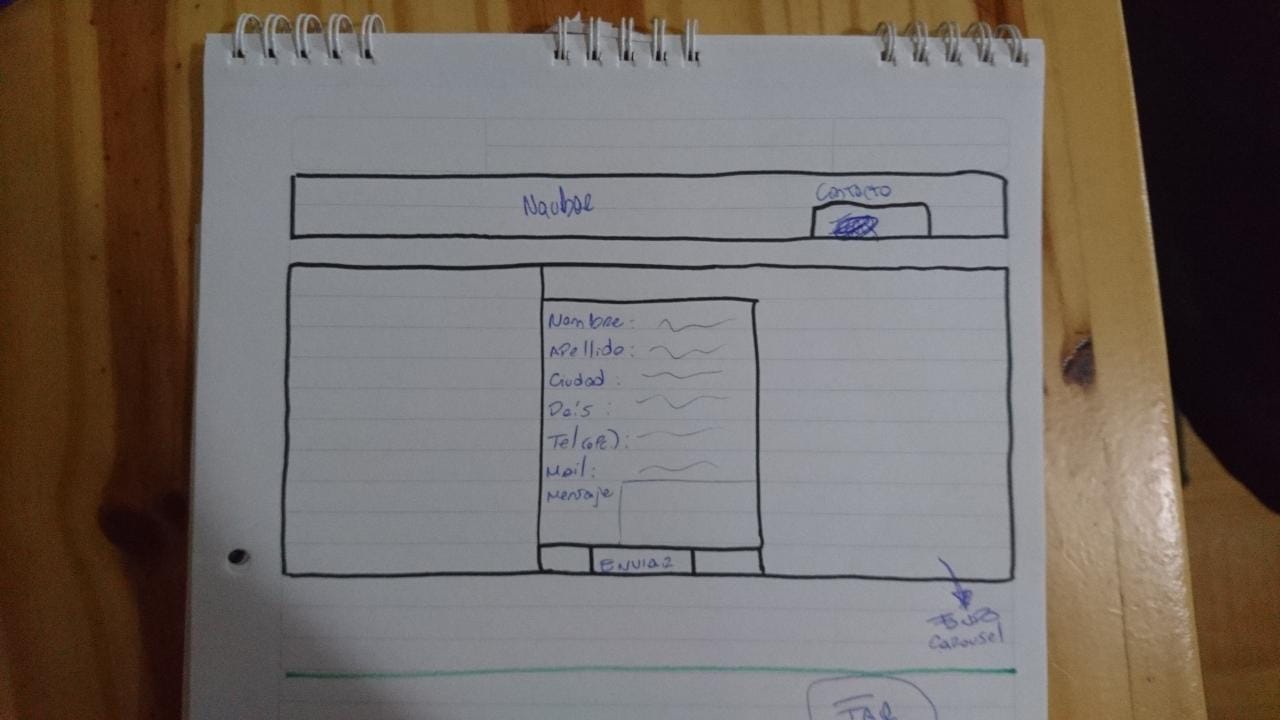 Navbar
Contacto
Nombre:
Apellido:
Ciudad:
País:
Tel(opc):
Mail:
Mensaje
ENVIAR
Carousel